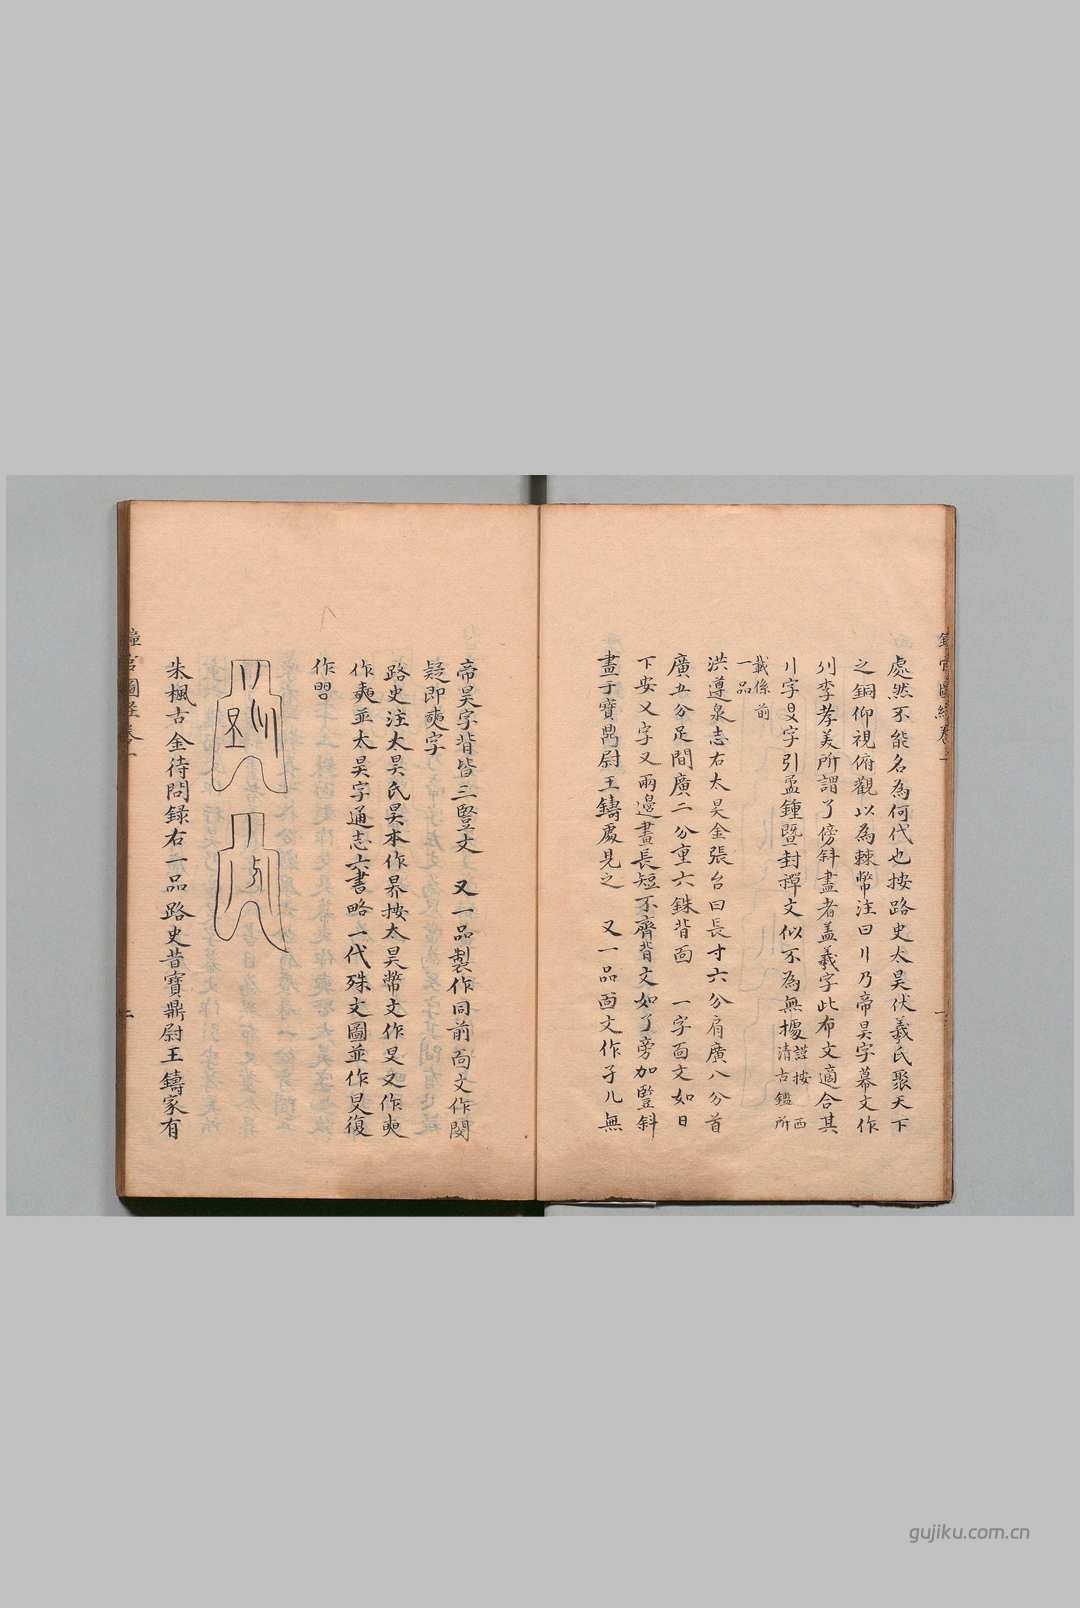 處然不能名為何代也按路史太昊伏羲氏聚天下
之銅仰視俯觀以為棘幣注曰〢乃帝昊字幕文作
〣李孝美所謂了傍斜畫者盖羲字此布文適合其
〢字㫗字引孟鍾暨封禪文似不為無據謹按西清古鑑所
載係前一品
洪遵泉志右太昊金張台曰長寸六分肩廣八分首
廣五分足間廣二分重六銖背面 一字面文如日
下安乂字又兩邊畫長短不齊背文如了旁加豎斜
畫于寶鼎尉王鑄處見之 又一品面文作子儿無
帝昊字背皆三豎文 又一品製作同前面文作閔
疑即奭字
路史注太昊氏昊本作昦按太昊幣文作㫗又作奭
作奭並太昊字通志六書略一代殊文圖並作㫗復
作
朱楓古金待問録右一品路史昔寶鼎尉王鑄家有
鐘官圖經卷一
一
二
gujiku.com.cn